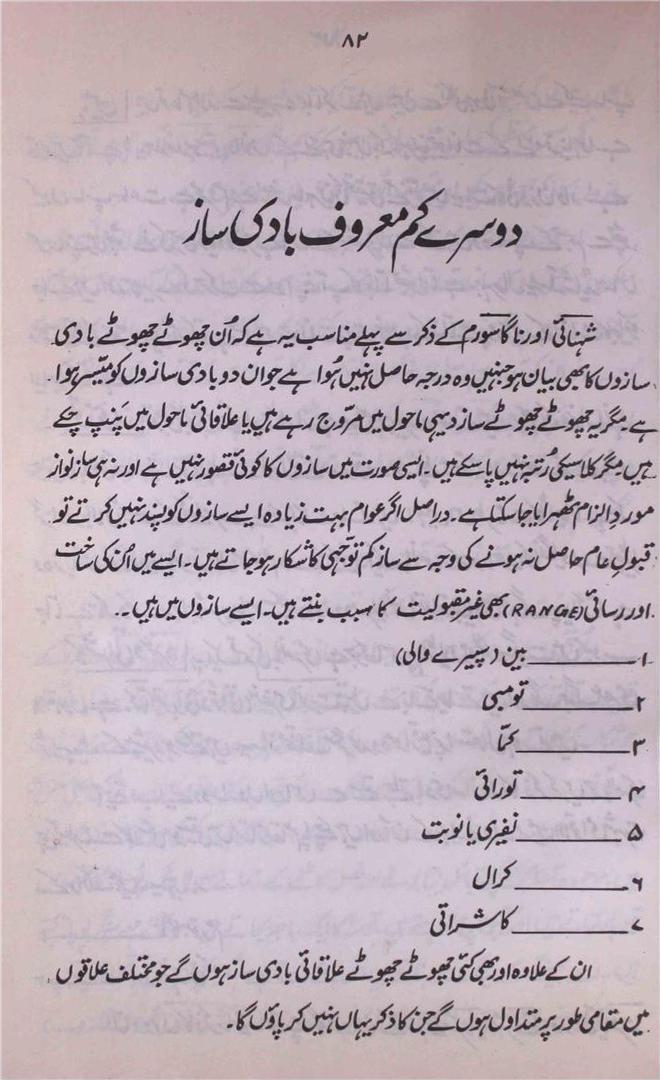 ۸۲
دوسرے کم معروف بادی ساز
شہنائی اور ناگاسورم کے ذکر سے پہلے مناسب یہ ہے کہ اُن چھوٹے چھوٹے بادی
سازوں کا بھی بیان ہو جنہیں وہ درجہ حاصل نہیں ہُوا ہے جو ان دو بادی سازوں کو میسّر ہوا
ہے مگر یہ چھوٹے چھوٹے ساز دیہی ماحول میں مروّج رہے ہیں یا علاقائی ماحول میں پَنپ چکے
ہیں مگر کلاسیکی رُتبہ نہیں پا سکے ہیں۔ ایسی صورت میں سازوں کا کوئی قصور نہیں ہے اور نہ ہی ساز نواز
موردِ الزام ٹھہرایا جا سکتا ہے۔ دراصل اگر عوام بہت زیادہ ایسے سازوں کو پسند نہیں کرتے تو
قبولِ عام حاصل نہ ہونے کی وجہ سے ساز کم توجہی کا شکار ہو جاتے ہیں۔ ایسے میں اُن کی ساخت
اور رسائی (RANGE) بھی غیر مقبولیت کا سبب بنتے ہیں۔ ایسے سازوں میں ہیں۔۔
۱۔ بین (سپیرے والی)
۲۔ تومبی
۳۔
۴۔ تورائی
۵۔ نفیری یا نوبت
۶۔ کرال
۷۔ کاشراتی
ان کے علاوہ اور بھی کئی چھوٹے چھوٹے علاقائی بادی ساز ہوں گے جو مختلف علاقوں
میں مقامی طور پر متداول ہوں گے جن کا ذکر یہاں نہیں کر پاؤں گا۔